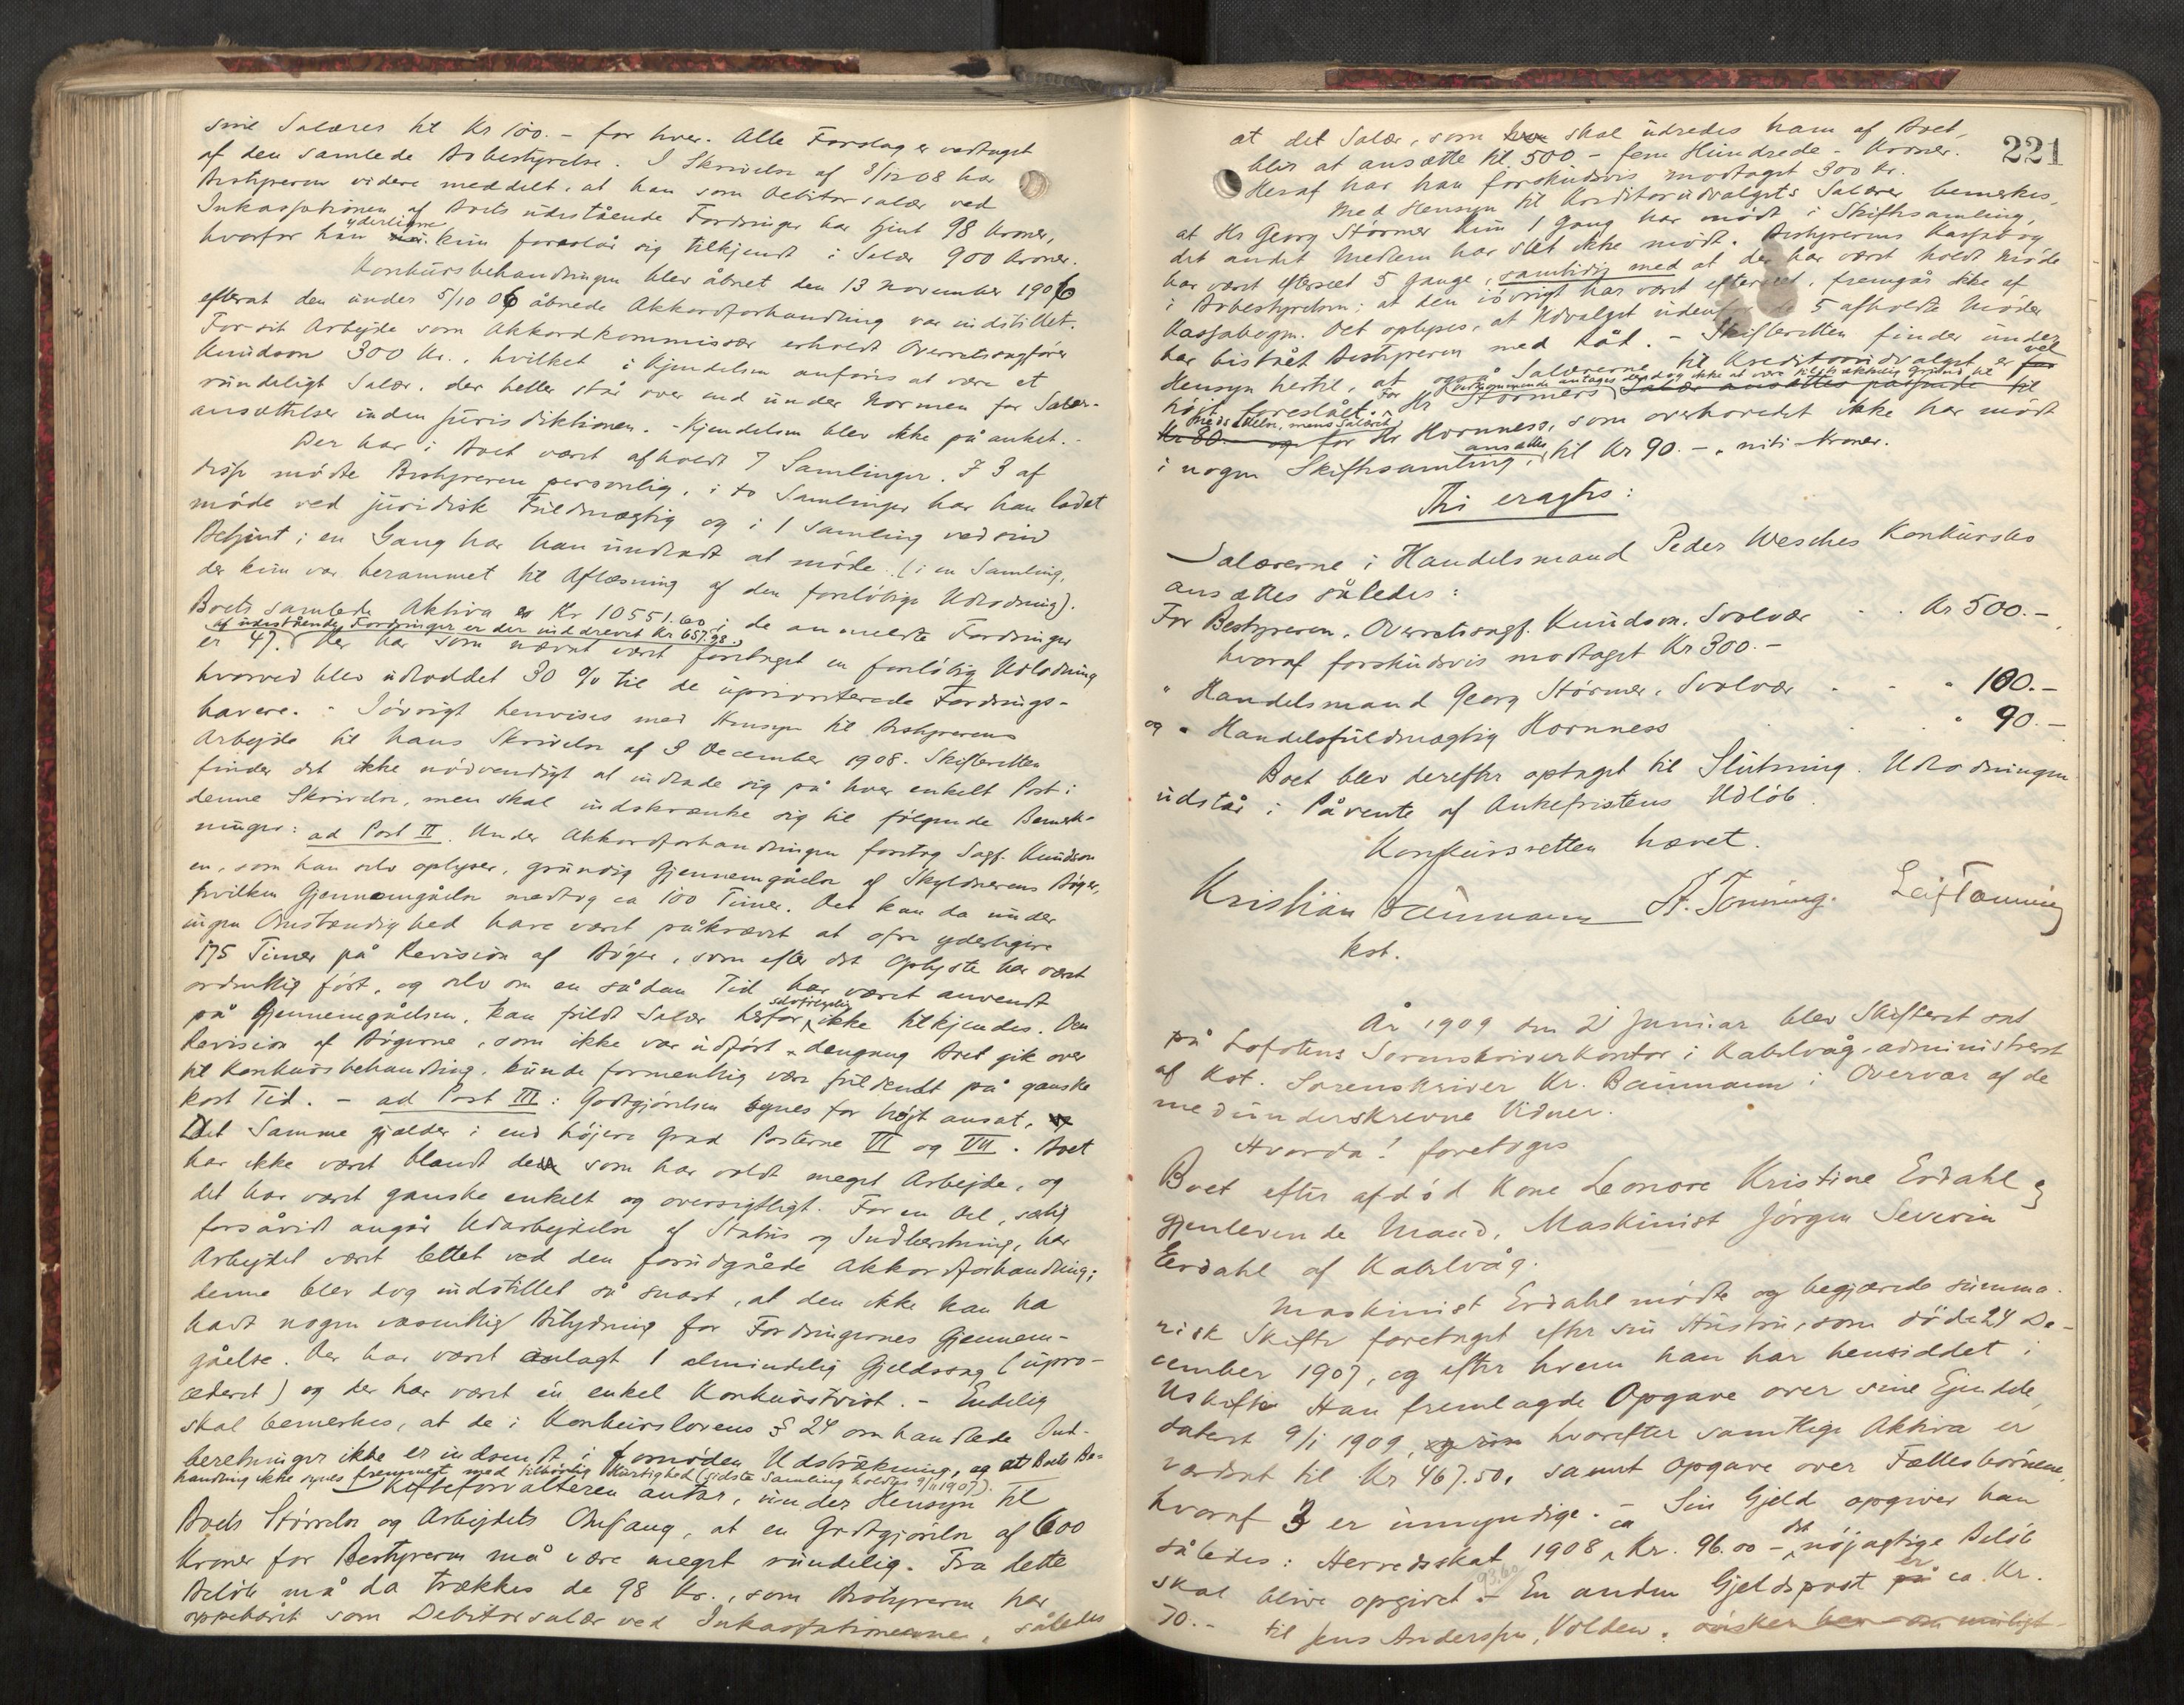 sine Salærer til Kr 100.- for hver. Alle Forslag er vedtaget
af den samlede Bobestyrelse. I Skrivelse af 3/12 08 har
Bestyreren videre meddelt, at han som Debitorsalær ved
Inkassationen af Boets udestående Fordringer har tjent 98 Kroner,
hvorfor han yderligere kun foreslår sig tilkjendt i Salær 900 Kroner.
Konkursbehandlingen blev åbnet den 13 November 1906
efterat den under 5/10 06 åbnede Akkordforhandling var indstillet.
For sit Arbejde som Akkordkommissær erholdt Overretssagfører
Knudson 300 Kr., hvilket i Kjendelsen anføres at være et
rundeligt Salær, der heller står over end under Normen for Salær-
ansættelser inden Jurisdiktionen. - Kjendelsen blev ikke påanket. -
Der har i Boet været afholdt 7 Samlinger. I 3 af
disse mødte Bestyreren personlig, i to Samlinger har han ladet
møde ved juridisk Fuldmægtig og i 1 Samling ved sin
Betjent; en Gang har han undladt at møde (i en Samling,
der kun var berammet til Aflæsning af den foreløbige Udlodning).
Boets samlede Aktiva er Kr 10551.60; de anmeldte Fordringer
af udestående Fordringer er der inddrevet Kr 657.98.
er 47. Der har som nævnt været foretaget en foreløbig Udlodning
hvorved blev udloddet 30 % til de upriorriterede Fordrings-
havere. - Iøvrigt henvises med Hensyn til Bestyrerens
Arbejde til hans Skrivelse af 3 December 1908. Skifteretten
finder det ikke nødvendigt at indlade sig på hver enkelt Post i
denne Skrivelse, men skal indskrænke sig til følgende Bemærk-
ninger: ad Post II. Under Akkordforhandlingen foretog Sagf. Knudson
en, som han selv oplyser, grundig Gjennemgåelse af Skyldnerens Bøger,
hvilken Gjennemgåelse medtog ca 100 Timer. Det kan da under
ingen Omstændighed have været påkrævet at ofre yderligere
175 Timer på Revision af Bøger, som efter det Oplyste har været
ordentlig ført, og selv om en sådan Tid har været anvendt
på Gjennemgåelsen, kan fuldt Salær herfor selvfølgelig ikke tilkjendes. Den
Revision af Bøgerne, som ikke var udført dengang Boet gik over
til Konkursbehandling, kunde formentlig være fuldendt på ganske
kort Tid. - ad Post III: Godtgjørelsen synes for højt ansat,
Det Samme gjælder i end højere Grad Posterne VI og VII. Boet
har ikke været blandt de som har voldt meget Arbejde, og
det har været ganske enkelt og oversigtligt. For en Del, særlig
forsåvidt angår Udarbejdelse af Status og Indberetning, har
Arbejdet været lettet ved den forudgåede Akkordforhandling;
denne blev dog indstillet så snart, at den ikke kan ha
havt nogen væsentlig Betydning for Fordringernes Gjennem-
gåelse. Der har været anlagt 1 almindelig Gjeldssag (upro-
cederet) og der har været én enkel Konkurstvist. - Endelig
skal bemerkes, at de i Konkurslovens § 24 omhandlede Ind-
beretninger ikke er indsendt i fornøden Udstrækning, og at Boets Be-
handling ikke synes fremmet med tilbørlig Hurtighed (sidste Samling holdtes 9/11 1907).
Skifteforvalteren antar, under Hensyn til
Boets Størrelse og Arbejdets Omfang, at en Godtgjørelse af 600
Kroner for Bestyreren må være meget rundelig. Fra dette
Beløb må da trækkes de 98 Kr., som Bestyreren har
oppebåret som Debitorsalær ved Inkassationerne, således
221
at det Salær, som skal udredes ham af Boet,
blir at ansætte til 500 - fem Hundrede - Kroner.
Heraf har han forskudsvis modtaget 300 Kr.
Med Hensyn til Kreditorudvalgets Salærer bemerkes,
at Hr Georg Størmer kun 1 Gang har mødt i Skiftesamling,
det andet Medlem har slet ikke mødt. Bestyrerens Kassabog
har været efterseet 5 Gange, samtidig med at der har været holdt Møde
i Bobestyrelsen; at den iøvrigt har været efterseet, fremgår ikke af
Kassabogen. Det oplyses, at Udvalget udenfor de 5 afholdte Møder
har bistået Bestyreren med Råd. - Skifteretten finder under
Hensyn hertil, at også Salærerne til Kreditorudvalget er vel
højt foreslået. For Hr Størmers Vedkommende antages der dog ikke at være tilstrækkelig Grund til
Nedsættelse, mens Salæret
for Hr Hornness, som overhovedet ikke har mødt
i nogen Skiftesamling, ansættes til Kr 90. - niti Kroner.
Thi eragtes:
Salærerne i Handelsmand Peder Wesches Konkursbo
ansættes således:
For Bestyreren, Overretssagf. Knudson, Svolvær . . Kr 500.-,
hvoraf forskudsvis modtaget Kr 300.-
" Handelsmand Georg Størmer, Svolvær - - " 100.-
og " Handelsfuldmægtig Hornness . . " 90.-
Boet blev derefter optaget til Slutning. Udlodningen
udstår i Påvente af Ankefristens Udløb.
Konkursretten hævet.
Kristian Baumann A. Tonning. Leif Tonning
kst.
År 1909 den 21 Januar blev Skifteret sat
på Lofotens Sorenskriverkontor i Kabelvåg, administreret
af kst. Sorenskriver Kr. Baumann i Overvær af de
medunderskrevne Vidner.
Hvorda! foretoges
Boet efter afdød Kone Leonore Kristine Erdahl og
gjenlevende Mand, Maskinist Jørgen Severin
Erdahl af Kabelvåg.
Maskinist Erdahl mødte og begjærede summa-
risk Skifte foretaget efter sin Hustru, som døde 24 De-
cember 1907, og efter hvem han har hensiddet i
Uskifte. Han fremlagde Opgave over sine Ejendele,
datert 9/1 1909, hvorefter samtlige Aktiva er
værdsat til Kr 467.50, samt Opgave over Fællesbørnene,
hvoraf 3 er umyndige. - Sin Gjeld opgiver han
således: Herredsskat 1908 ca Kr. 96.00 - det nøjagtige Beløb
skal blive opgivet. - 93.60 En anden Gjeldspost er ca. Kr.
70.- til Jens Anderssen, Volden.